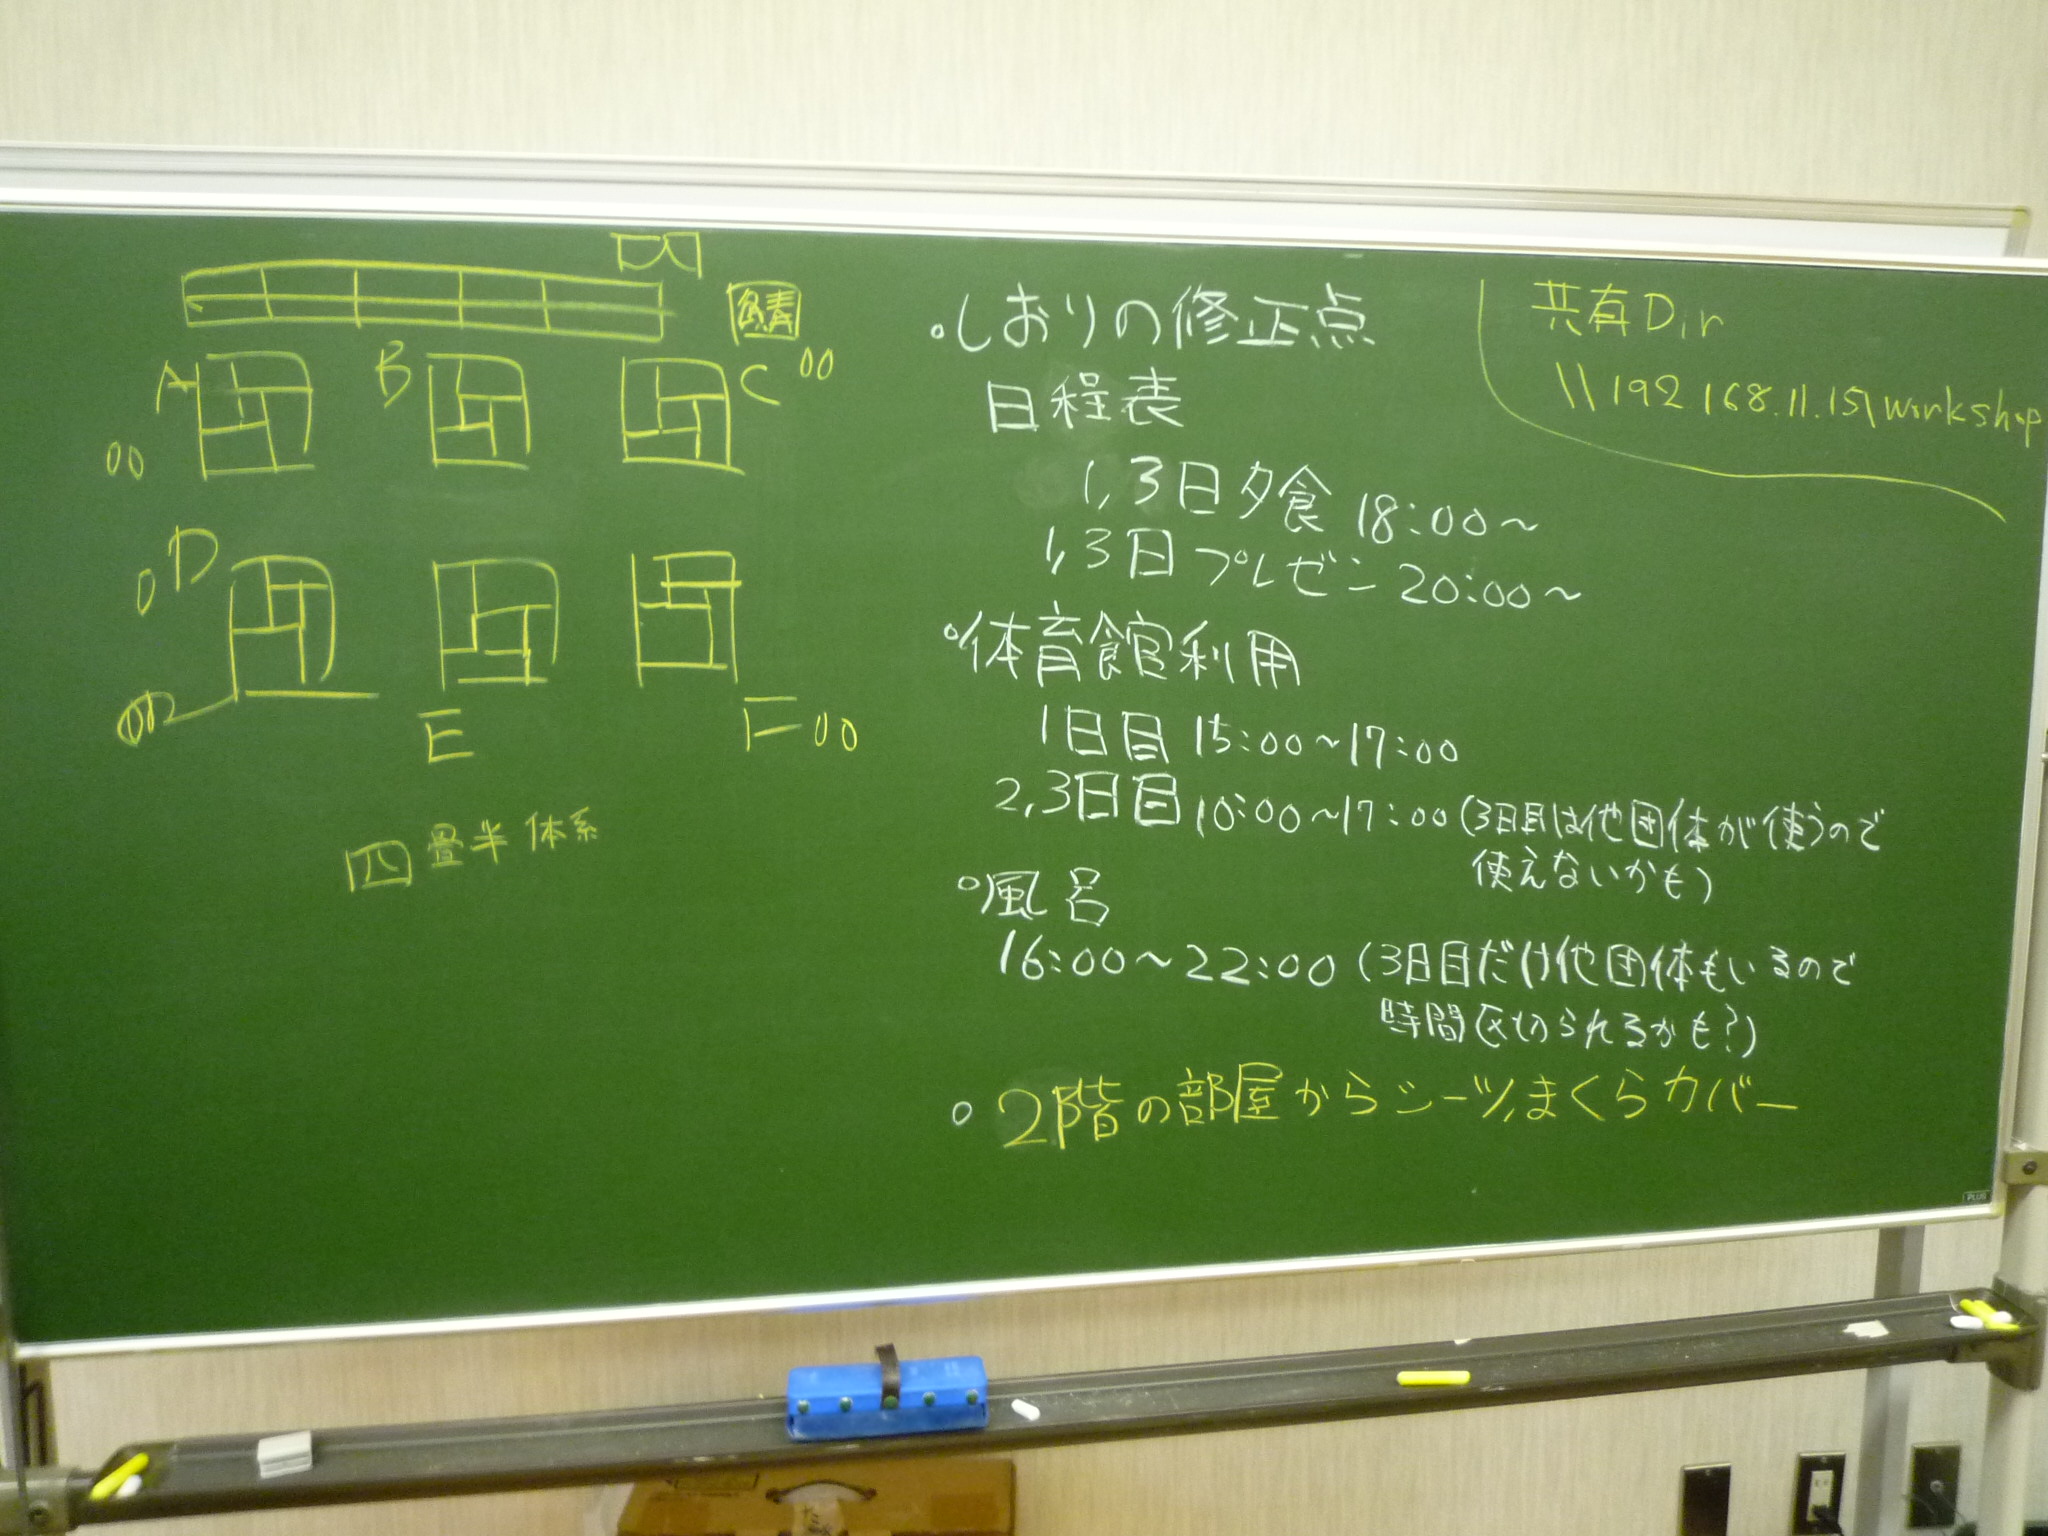 鯖
A
B
C 00
00
D
0
E
F 00
四畳半体系
。しおりの修正点
日程表
1,3日夕食 18:00～
1,3日プレゼン 20:00～
。体育館利用
1日目 15:00～17:00
2,3日目 10:00～17:00 (3日目は他団体が使うので
使えないかも)
。風呂
16:00～22:00 (3日目だけ他団体もいるので
時間区切られるかも?)
。2階の部屋からシーツ,まくらカバー
共有Dir
\\192 168.11.15\workshop
PLUS